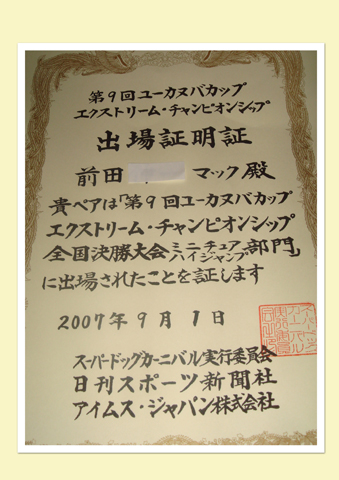 第9回ユーカヌバカップ
エクストリーム・チャンピオンシップ
出場証明証
前田 マック殿
貴ペアは「第9回ユーカヌバカップ
エクストリーム・チャンピオンシップ
全国決勝大会ミニチュアハイジャンプ部門」
に出場されたことを証します
2007年9月1日
スーパードッグカーニバル実行委員会
日刊スポーツ新聞社
アイムス・ジャパン株式会社